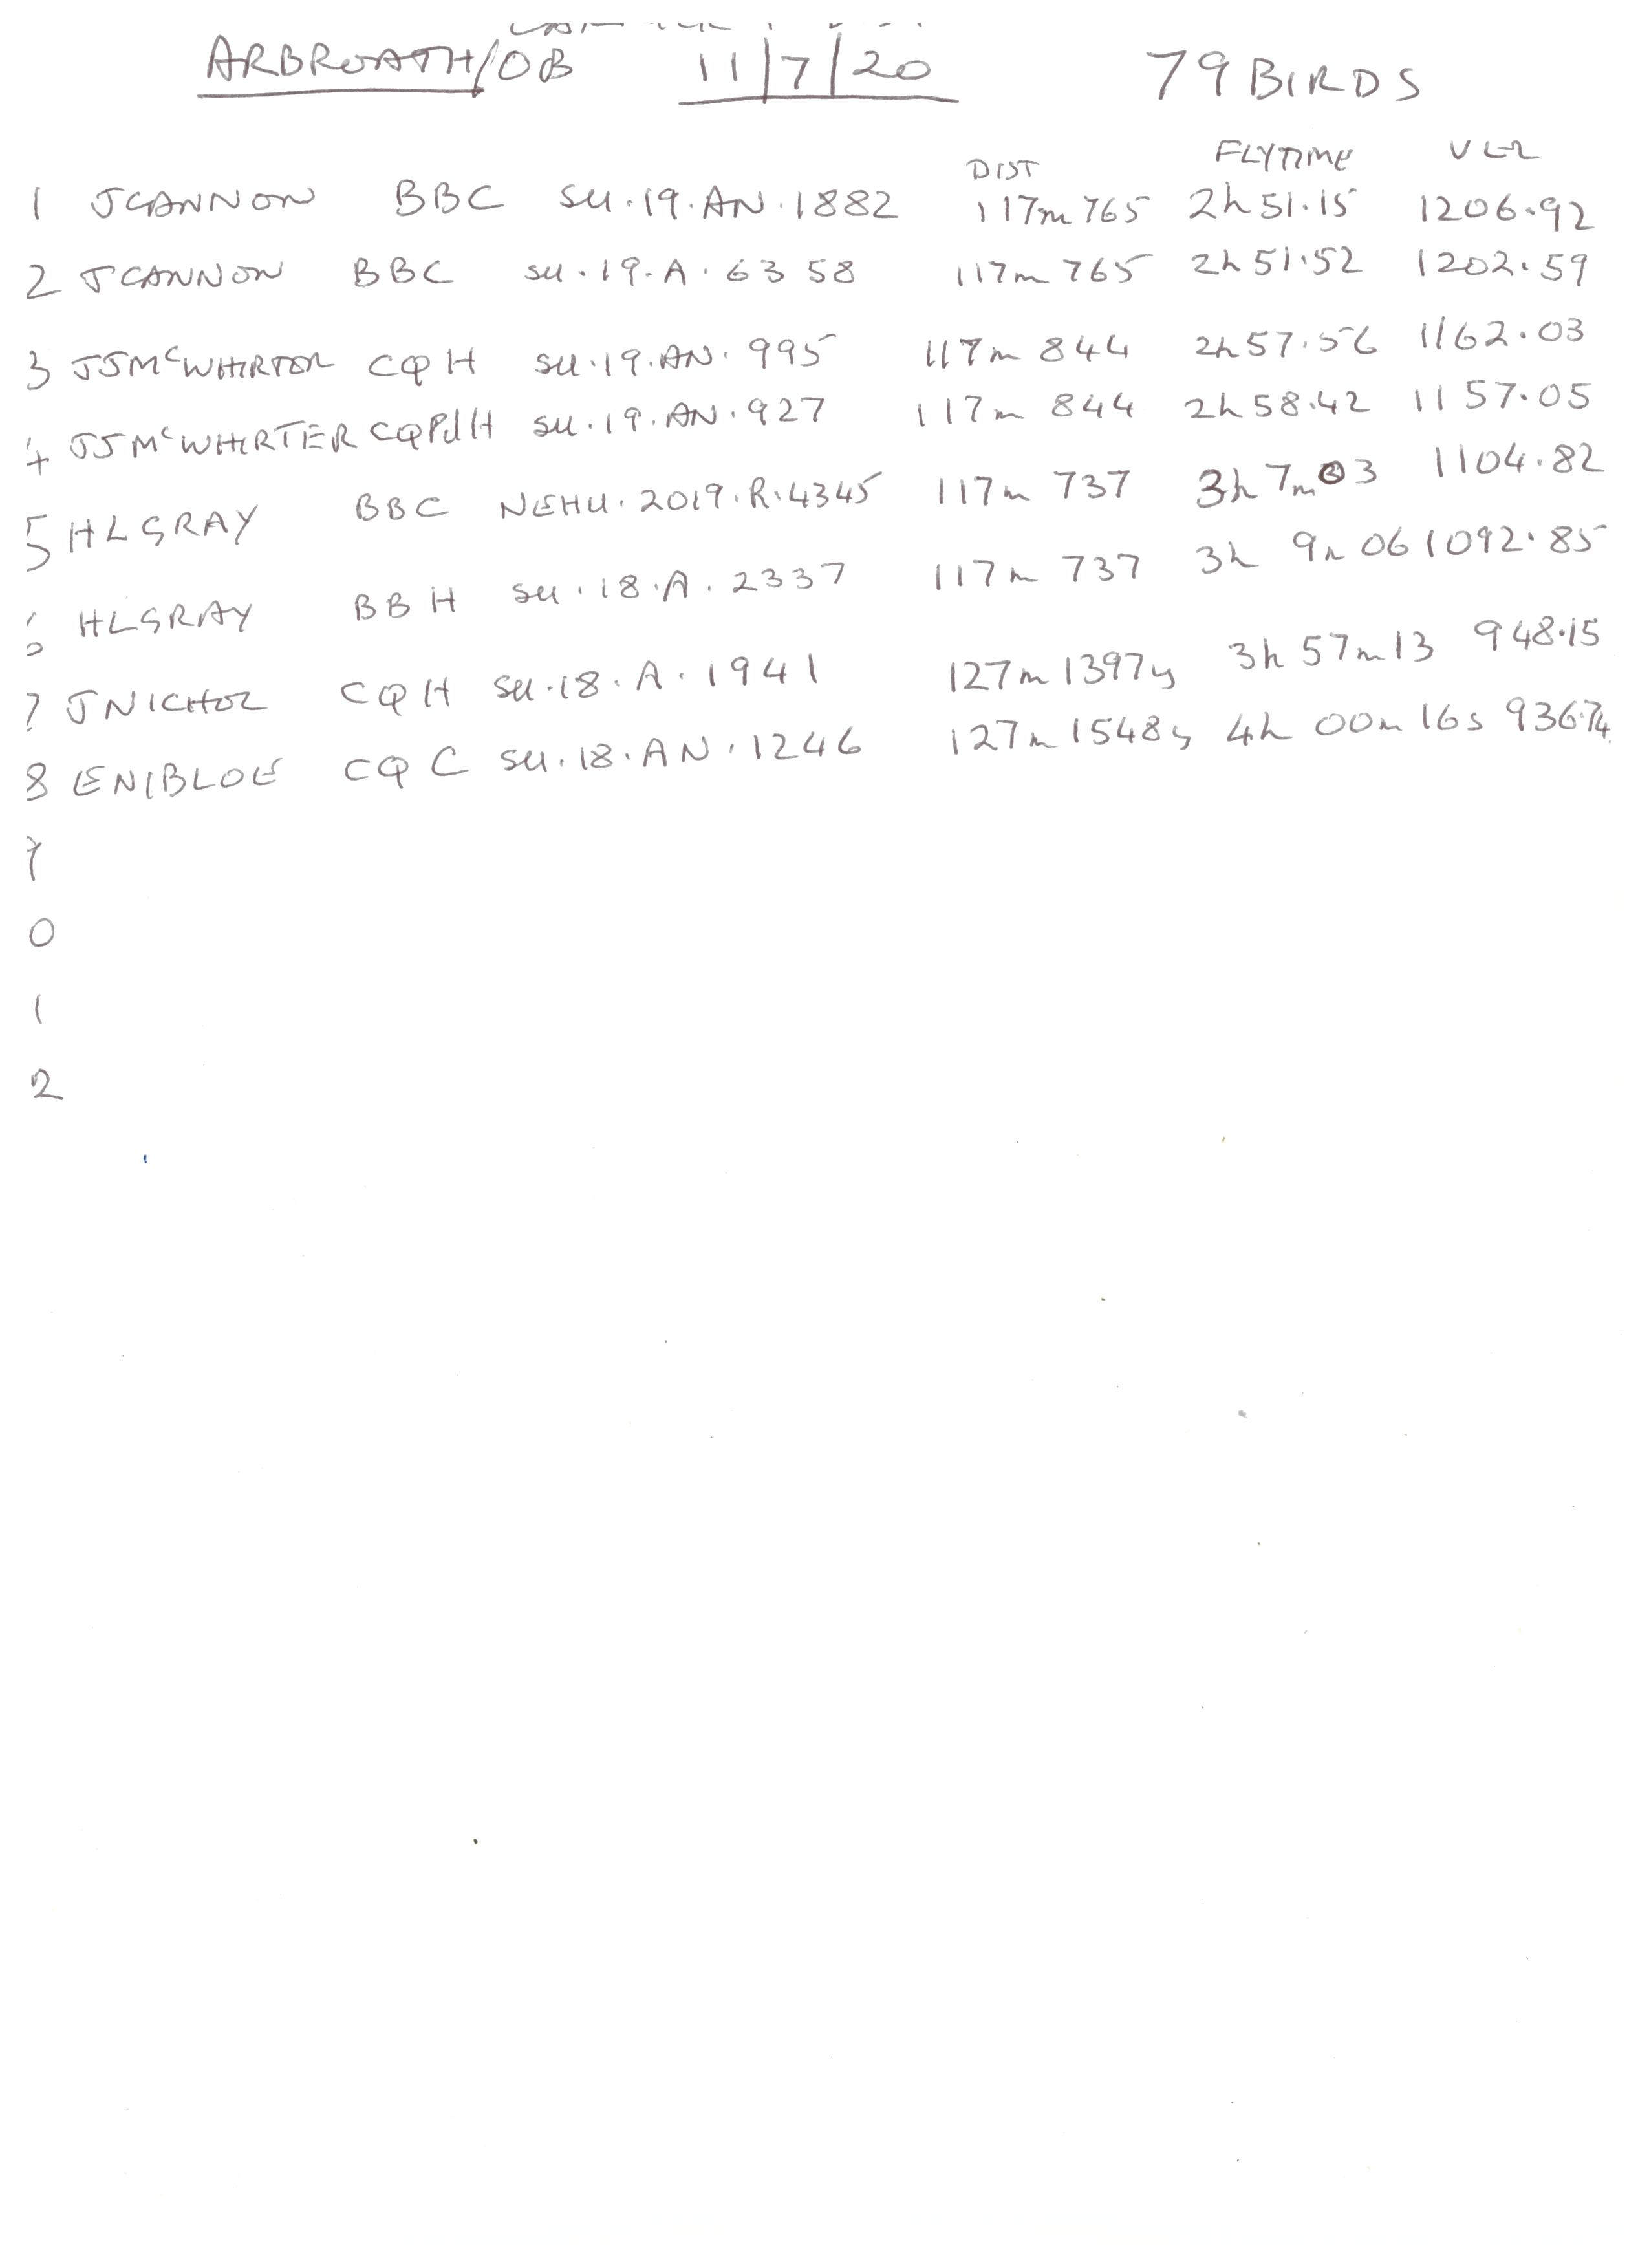 ARBROATH/OB 11/7/20 79 BIRDS
DIST FLYTIME VEL
1 JCANNON BBC SU.19.AN.1882 117m 765 2h 51.15 1206.92
2 JCANNON BBC SU.19.A.6358 117m 765 2h 51.52 1202.59
3 JJMcWHIRTER CQH SU.19.AN.995 117m 844 2h 57.56 1162.03
4 JJMcWHIRTER CQPdH SU.19.AN.927 117m 844 2h 58.42 1157.05
5 HLGRAY BBC NEHU.2019.R.4345 117m 737 3h 7m 03 1104.82
6 HLGRAY BBH SU.18.A.2337 117m 737 3h 9m 06 1092.85
7 JNICHOL CQH SU.18.A.1941 127m 1397y 3h 57m 13 948.15
8 ENIBLOE CQC SU.18.AN.1246 127m 1548y 4h 00m 16s 936.74
9
0
1
2